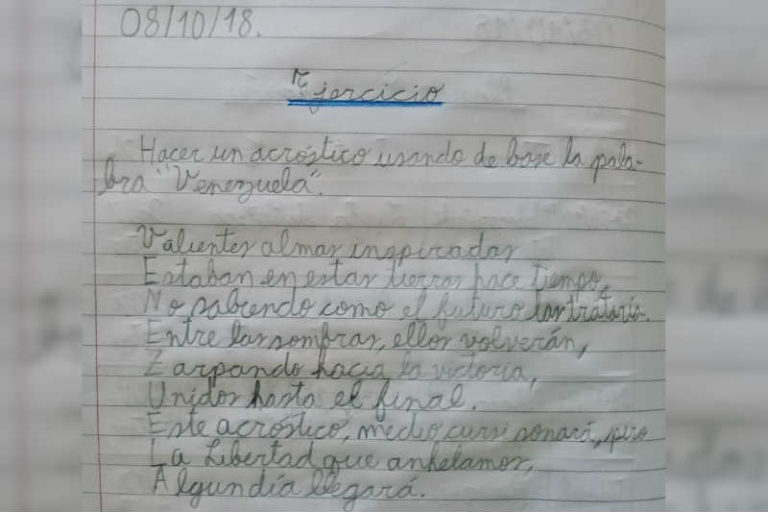 08/10/18.
Ejercicio
Hacer un acróstico usando de base la pala-
bra "Venezuela".
Valientes almas inspiradas
Estaban en estas tierras hace tiempo,
No sabiendo como el futuro las trataría.
Entre las sombras, ellos volverán,
Zarpando hacia la victoria,
Unidos hasta el final.
Este acróstico, medio cursi sonará, pero
La Libertad que anhelamos,
Algun día llegará.